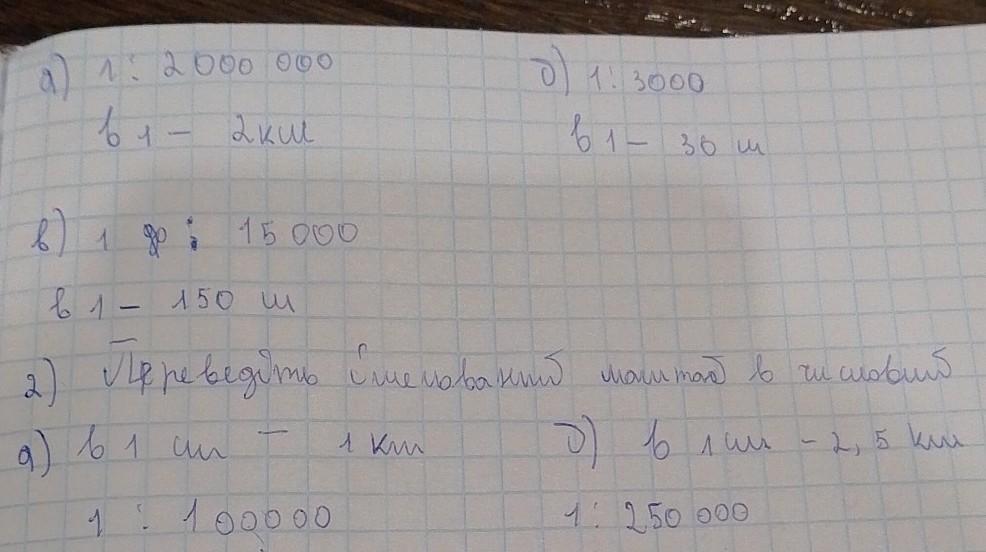 а) 1 : 2000 000 б) 1 : 3000
в 1 - 2км в 1 - 30 м
в) 1 : 15 000
в 1 - 150 м
2) Переведіть іменований маштаб в числовий
а) в 1 см - 1 км б) в 1 см - 2,5 км
1 : 100000 1 : 250 000